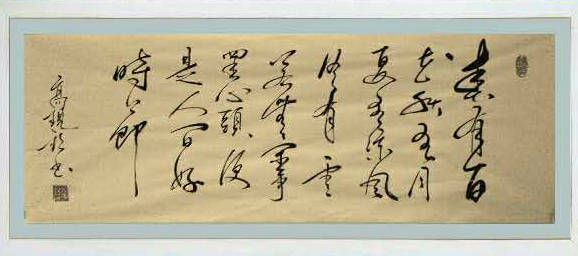 春有百
花秋有月
夏有凉风
冬有雪
若無闲事
罣心頭便
是人间好
時節
高书